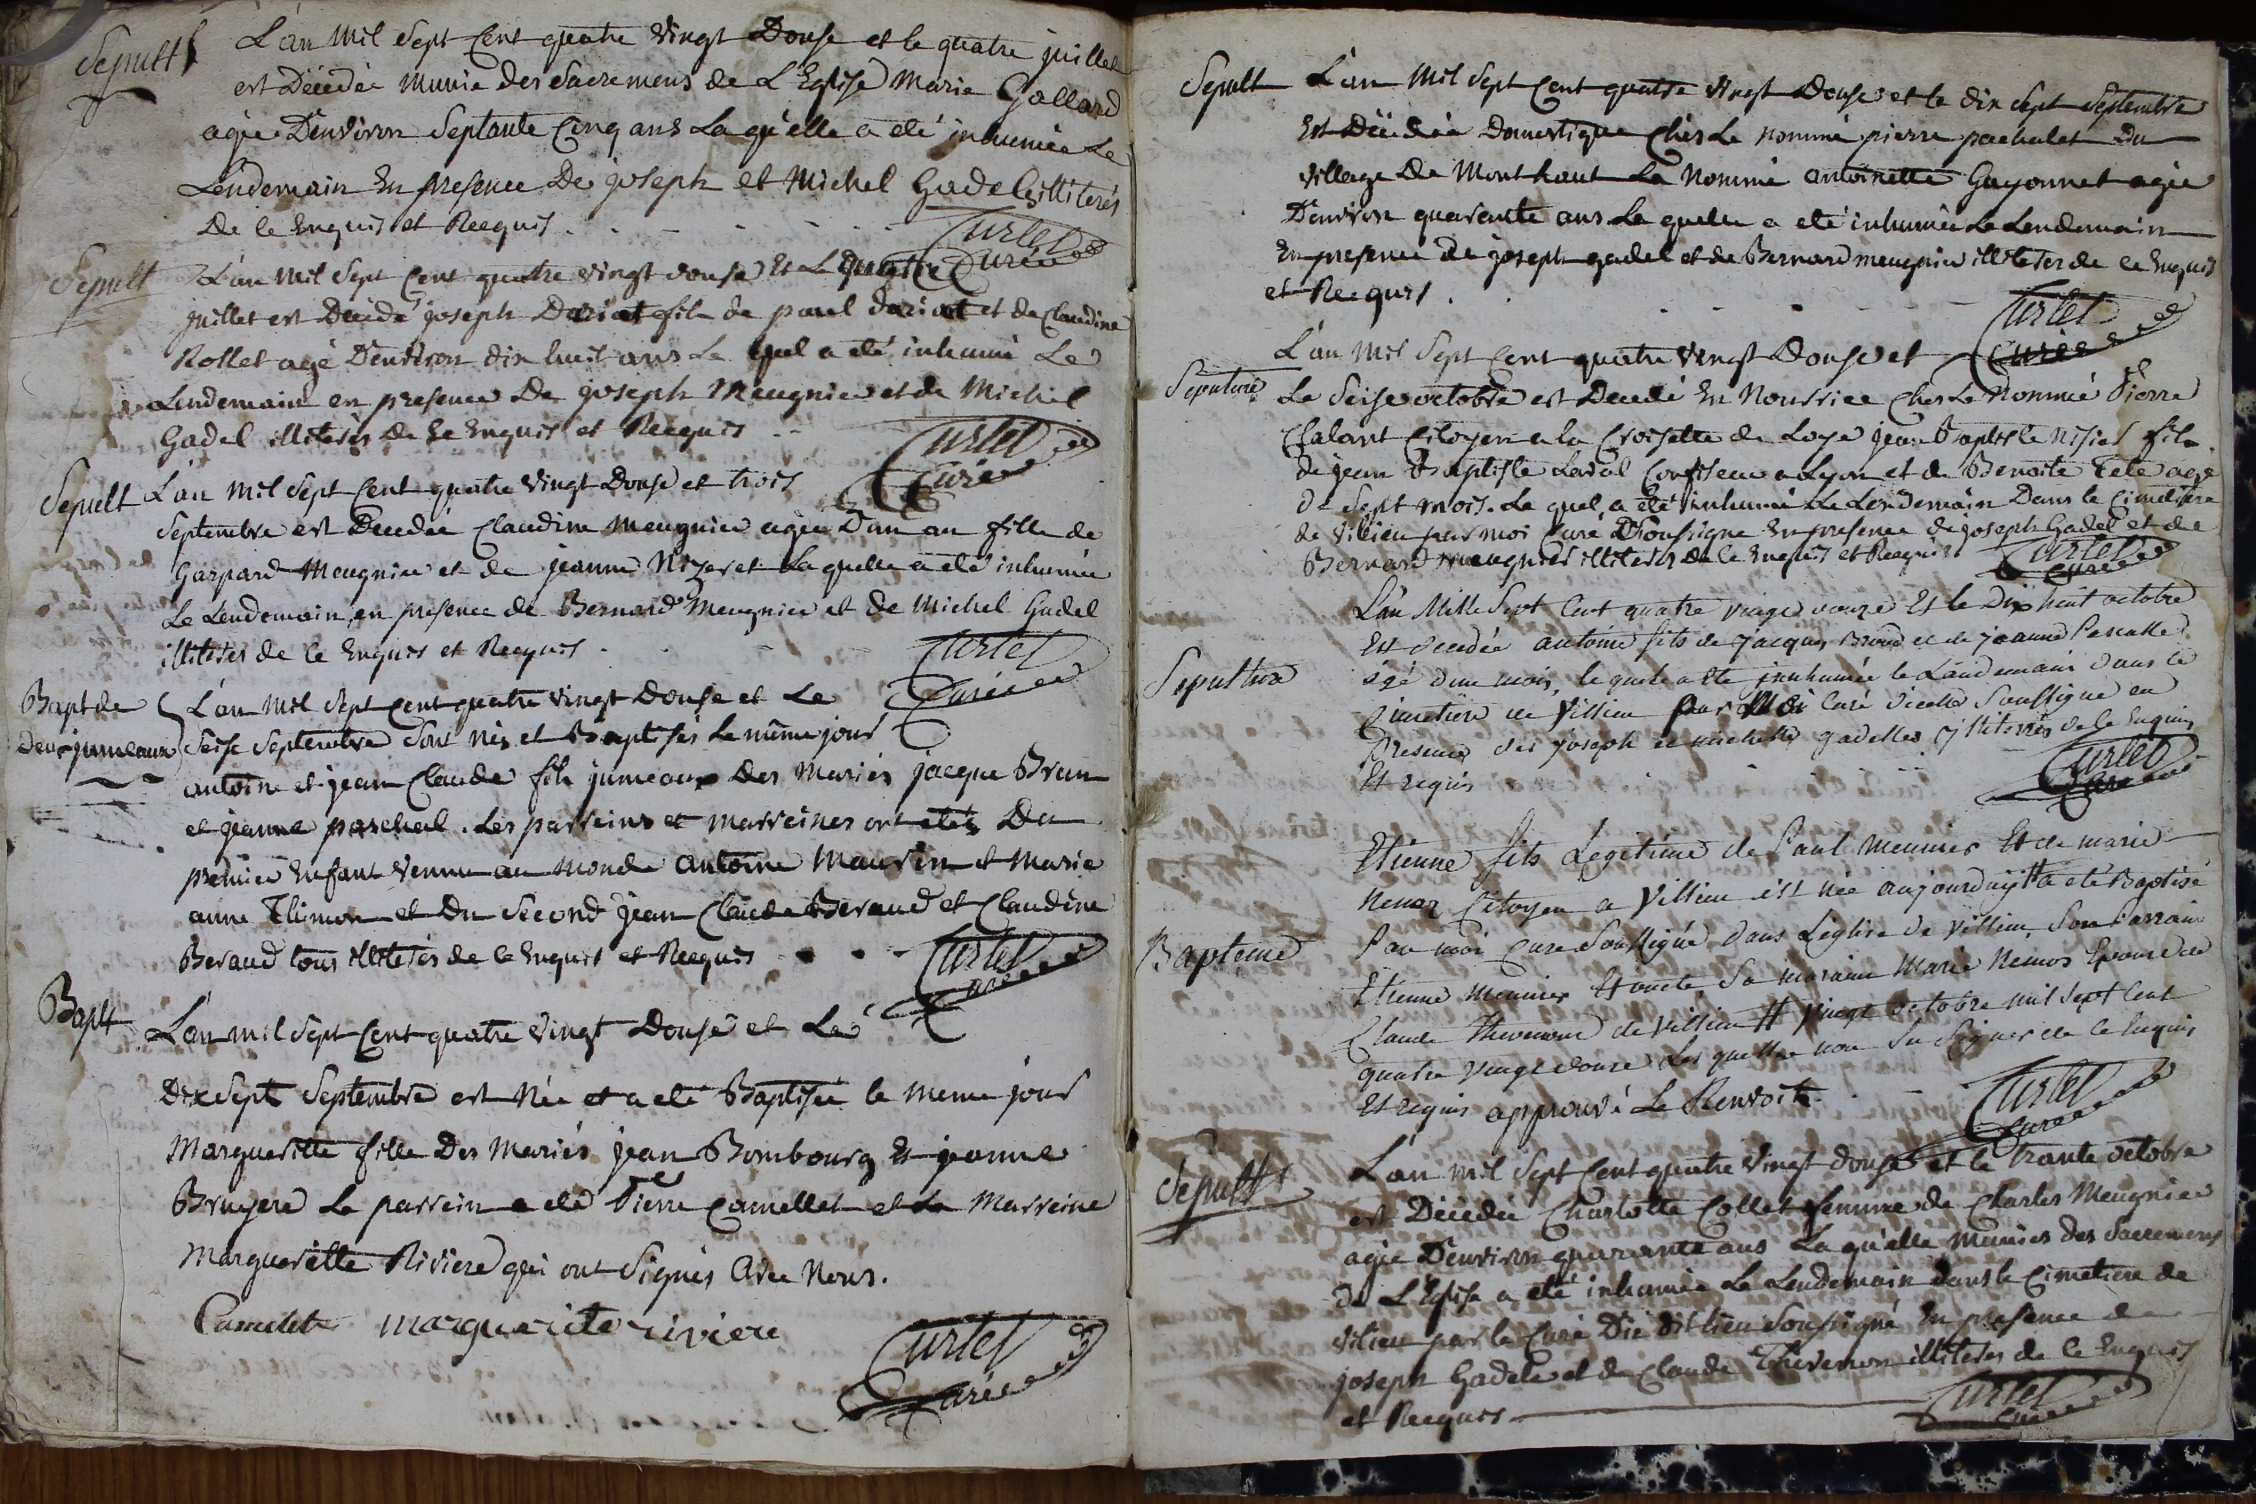 Sepult
L'an mil Sept Cent quatre vingt Douse et le quatre juillet
est Décédée munie des Sacremens de L'Eglise Marie Gallard
agée D'environ Septante Cinq ans La qu'elle a été inhumée Le
Lendemain En presence De joseph et Michel Gadel illiterés
De ce Enquis et Requis
Curlet
Curé
Sepult
L'an mil Sept Cent quatre vingt douse Et Le quatre
juillet est Décédé joseph Dariot fils de paul dariot et de Claudine
Rollet agé D'environ dix huit ans Le quel a été inhumé Le
Lendemain en presence De joseph Meugnier et de Michel
Gadel illiterés De ce Enquis et Requis
Curlet
Curé
Sepult
L'an mil Sept Cent quatre vingt Douse et trois
Septembre est Decedée Claudine meugnier agée D'un an fille de
Gaspard Meugnier et de jeanne Nizeret Laquelle a été inhumée
Le Lendemain en presence de Bernard Meugnier et de Michel Gadel
illiterés de ce Enquis et Requis
Curlet
Curé
Bapt de
deux jumeaux
L'an mil Sept Cent quatre vingt Douse et Le
Seise Septembre Sont nés et Baptisés Le même jour
antoine et jean Claude fils jumeaux des Mariés jacque Brun
et jeanne paschal. Les parreins et marreines ont étés Du
premier Enfant venu au monde antoine Mauvin et Marie
anne Thimon et du Second jean Claude Beraud et Claudine
Beraud tous illiterés de ce Enquis et Requis
Curlet
Curé
Bapt
L'an mil Sept Cent quatre vingt Douse et Le
Dix Sept Septembre est Née et a été Baptisée le meme jour
Margueritte fille Des Mariés jean Bombourg Et jeanne
Bruyere Le parrein a été Pierre Camellet et La Marreine
Margueritte Riviere qui ont Signés Avec Nous.
Camelet marguerite riviere
Curlet
Curé
Sepult
L'an Mil Sept Cent quatre vingt Douse et le dix Sept Septembre
Est Décédée Domestique Chés Le nommé pierre pachalet Du
village De Monthaut La Nommé antoinette Guyonnet agée
D'environ quarante ans La quelle a été inhumée Le Lendemain
En presence de joseph gadel et de Bernard meugnier illiterés de ce Enquis
et Requis
Curlet
Curé
Sepulture
L'an Mil Sept Cent quatre vingt Douse et
Le Seise octobre est Decedé En Nourrice Chez Le Nommé Pierre
Chalant Citoyen a la Croisette de Loye jean Baptiste fils
de jean Baptiste Laval Confiseur a Lyon et de Benoite Tete agé
de Sept mois. Le quel a été inhumé Le Lendemain Dans le Cimetiere
de Vilieu par moi Curé Soussigné En presence de joseph Gadel et de
Bernard meugnier illiterés de ce Enquis et Requis
Curlet
Curé
Sepulture
L'an Mille Sept Cent quatre vingt douze Et le Dix huit octobre
Est decedée antoine fils de jacques Brund et de jeanne Pascalle
agé d'un mois, le quele a été innhumée le Landemain dans le
Cimetiere de Villieu par Moi Curé dicelle Soussigne en
Presence des joseph et michelle gadelles illiterés de ce Enquis
Et requis
Curlet
Curé
Bapteme
Etienne fils Legitime de Paul Meunier Et de marie
Nemoz Citoyen a Villieu est née aujourduy # a été Baptisé
Par moi Curé Soussigné dans Léglise de Villieu, Son Parrain
Etienne Meunier Et oncle Sa maraine Marie Nemos Epouse de
Claude Thevenon de Villieu # vingt octobre mil Sept Cent
quatre vingt douze Les quelles non Su Signer de ce Enquis
Et requis approuvé Le Renvoit
Curlet
Curé
Sepult
L'an mil Sept Cent quatre vingt douse et le trante octobre
est Décedée Charlotte Collet femme de Charles Meugnier
agée D'environ quarante ans La qu'elle munies des Sacremens
de L'Eglise a été inhumée Le Lendemain dans le Cimetiere de
vilieu par le Curé Du dit lieu Soussigné En presence de
joseph Gadele et de Claude Thevenon illiterés de ce Enquis
et Requis
Curlet
Curé